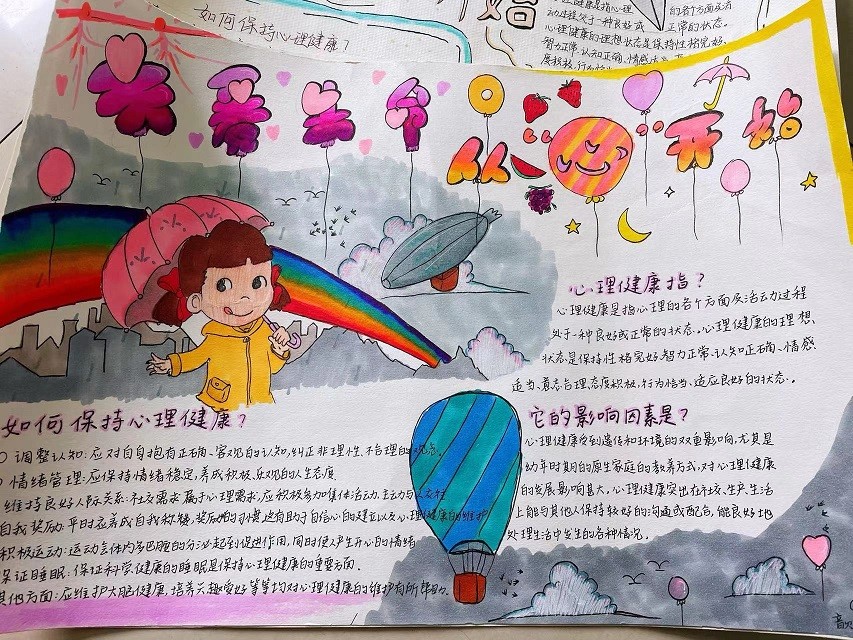 如何保持心理健康?
心理健康是指心理的各个方面及活
动过程处于一种良好或正常的状态。
心理健康的理想状态是保持性格完好、
智力正常、认知正确、情感
从心开始
心理健康指?
心理健康是指心理的各个方面及活动过程
处于一种良好或正常的状态。心理健康的理想
状态是保持性格完好、智力正常、认知正确、情感
适当、意志合理、态度积极、行为恰当、适应良好的状态。
它的影响因素是?
心理健康受到遗传和环境的双重影响,尤其是
幼年时期的原生家庭的教养方式,对心理健康
的发展影响甚大。心理健康突出在社交、生产、生活
上能与其他人保持较好的沟通或配合,能良好地
处理生活中发生的各种情况。
如何保持心理健康?
调整认知:应对自身抱有正确、客观的认知,纠正非理性、不合理的观念。
情绪管理:应保持情绪稳定,养成积极、乐观的人生态度
维持良好人际关系:社交需求属于心理需求,应积极参加集体活动,主动与人交往
自我奖励:平时应养成自我称赞,奖励的习惯,也有助于自信心的建立以及心理健康的维护
积极运动:运动会体内多巴胺的分泌起到促进作用,同时使人产生开心的情绪
保证睡眠:保证科学健康的睡眠是保持心理健康的重要方面。
其他方面:应维护大脑健康,培养兴趣爱好等等均对心理健康的维护有所帮助。